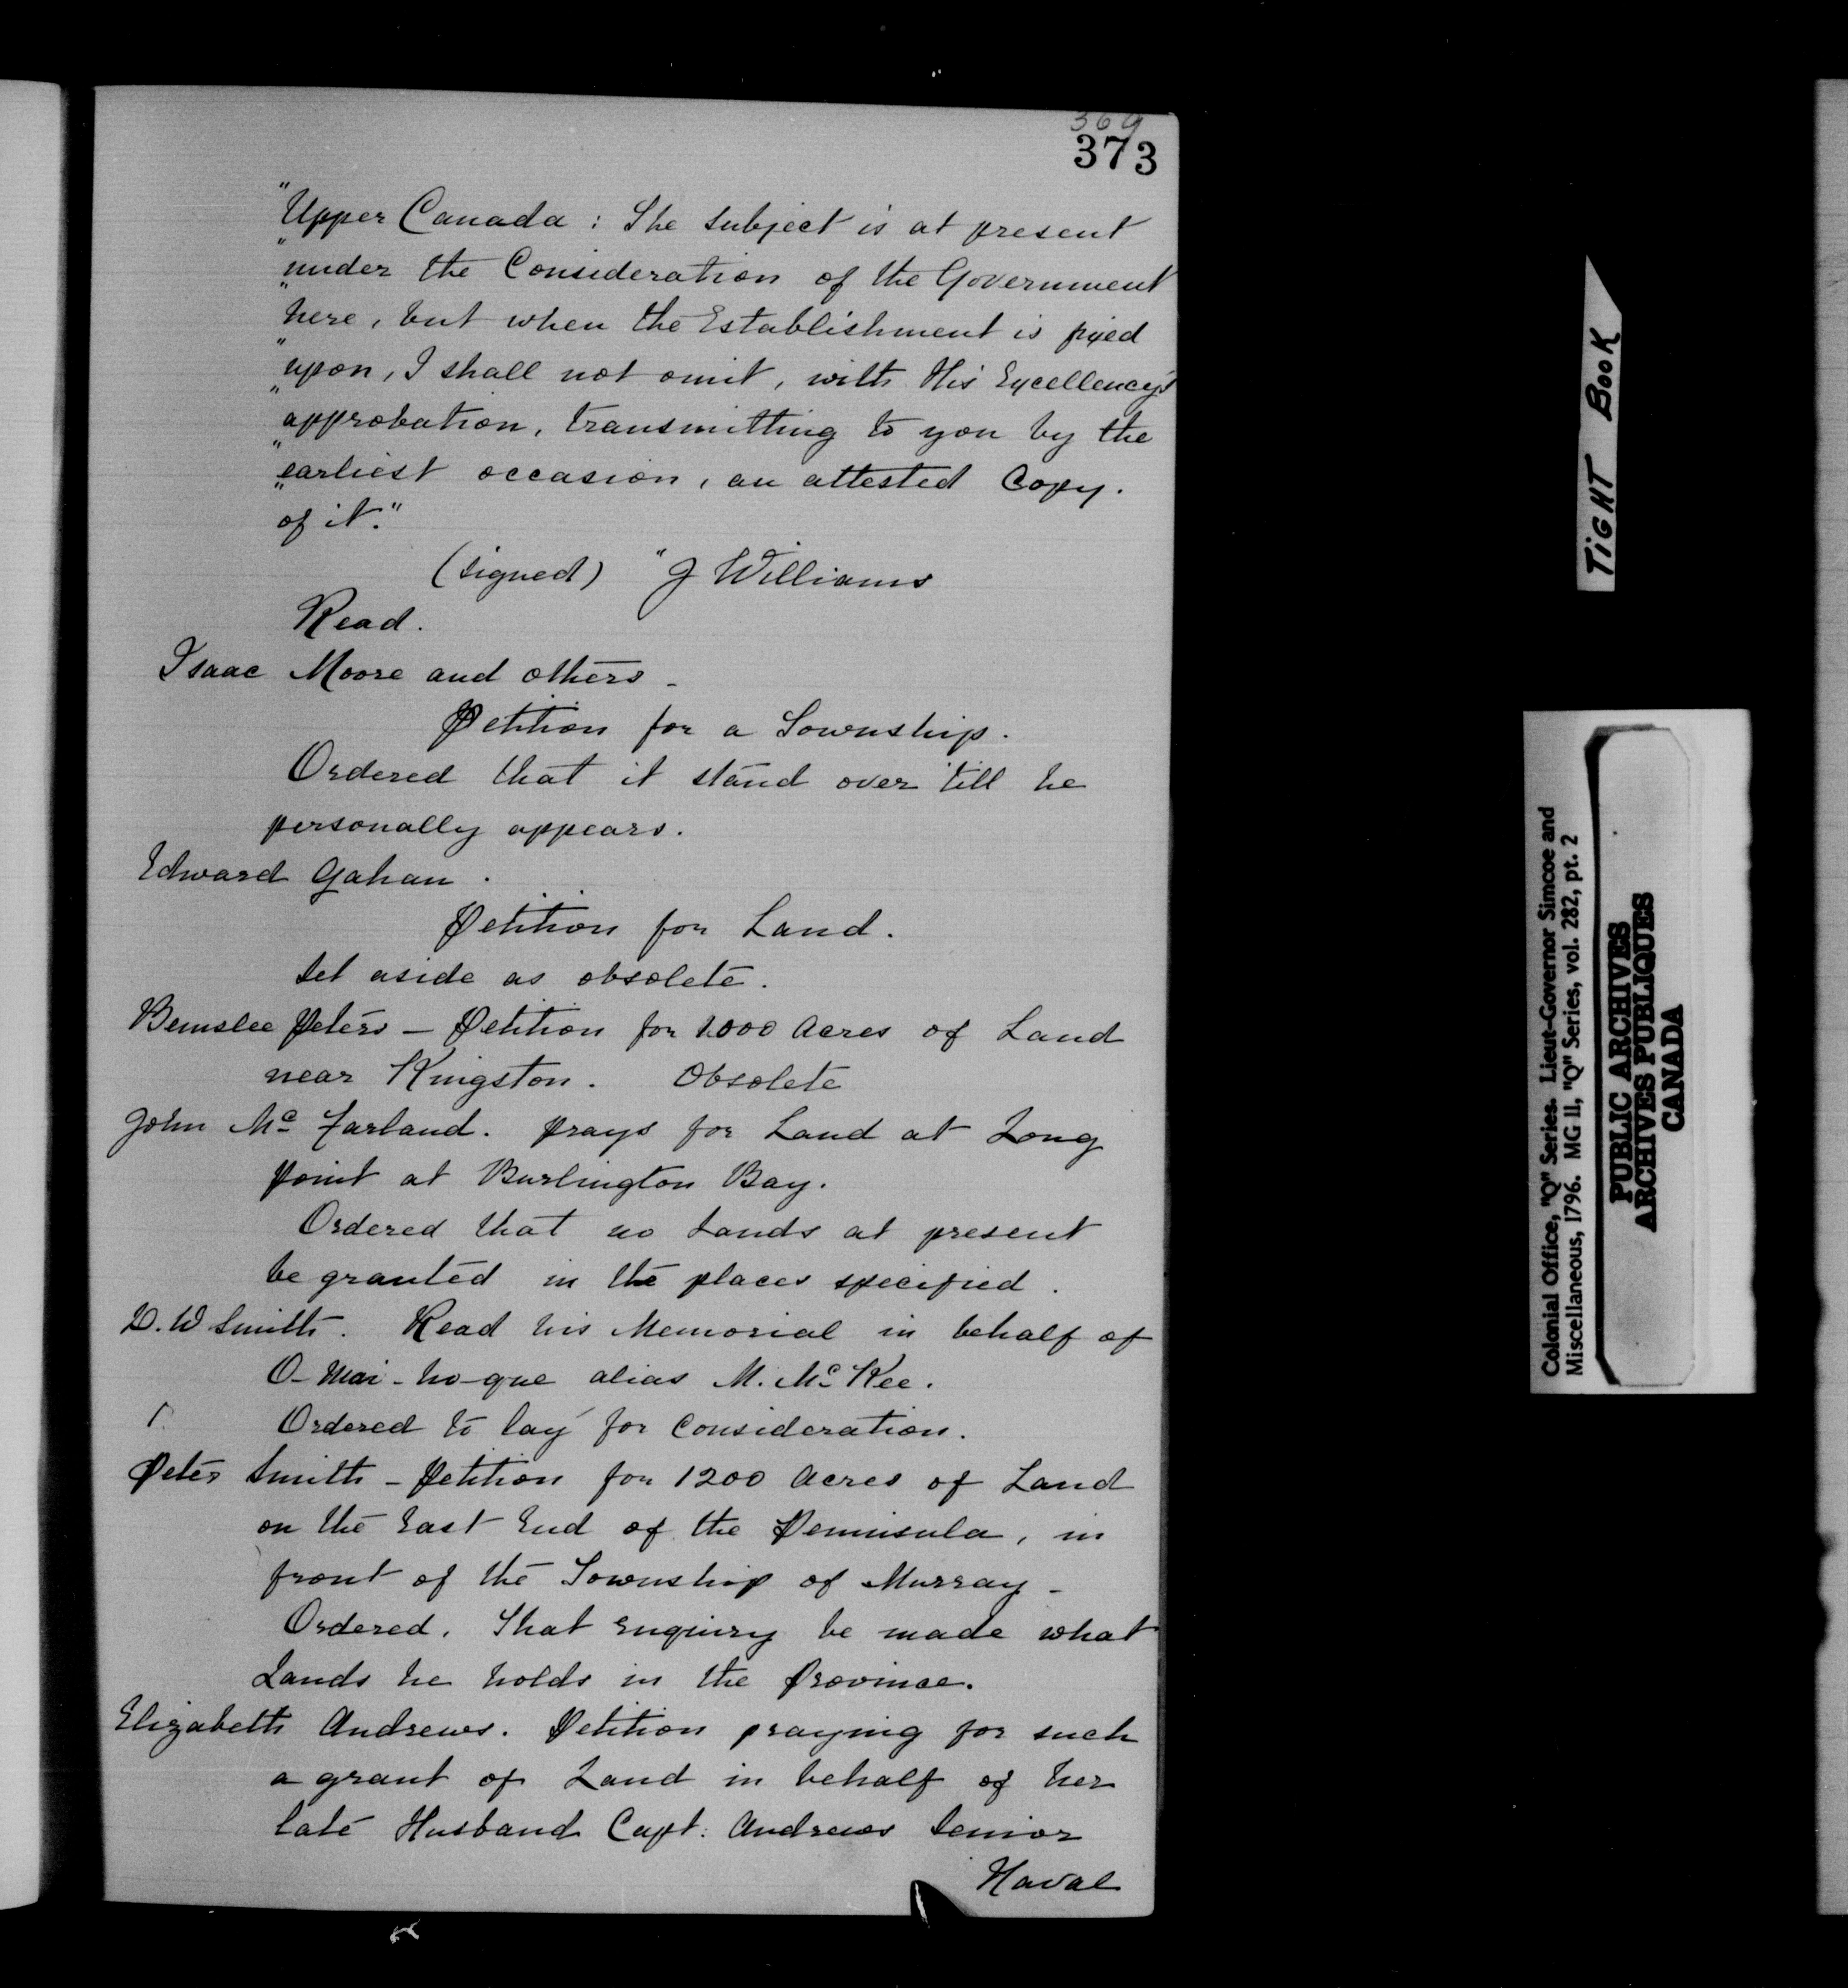 369
373
"Upper Canada : The subject is at present
"under the Consideration of the Government
"here, but when the Establishment is fixed
"upon, I shall not omit, with His Excellency's
"approbation, transmitting to you by the
"earliest occasion, an attested Copy.
"of it."
(signed) "J Williams
Read.
Isaac Moore and others -
Petition for a Township.
Ordered that it stand over 'till he
personally appears.
Edward Gahan.
Petition for Land.
Set aside as obsolete.
Bemslee Peters - Petition for 1.000 Acres of Land
near Kingston. Obsolete
John Mc Farland. prays for Land at Long
point at Burlington Bay.
Ordered that no Lands at present
be granted in the places specified.
D. W Smith. Read his Memorial in behalf of
O-Mai-ho-que alias M. McKee.
Ordered to lay for Consideration.
Peter Smith - Petition for 1200 Acres of Land
on the East End of the Penninsula, in
front of the Township of Murray -
Ordered. That Enquiry be made what
Lands he holds in the Province.
Elizabeth Andrews. Petition praying for such
a grant of Land in behalf of her
late Husband Capt. Andrews Senior
Naval
TIGHT BOOK
Colonial Office, "Q" Series. Lieut-Governor Simcoe and
Miscellaneous, 1796. MG 11, "Q" Series, vol. 282, pt. 2
PUBLIC ARCHIVES
ARCHIVES PUBLIQUES
CANADA